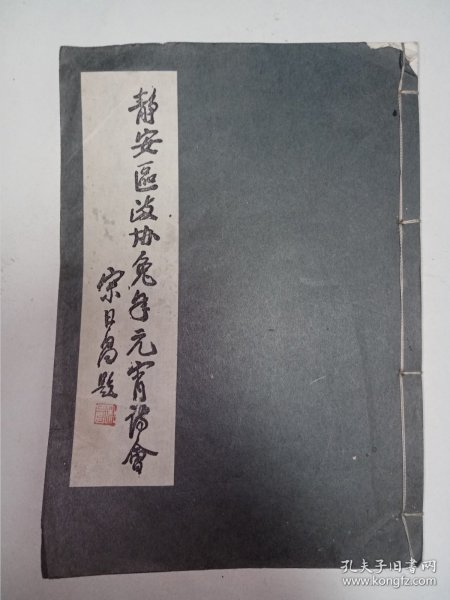 静安區政协兔年元宵詩會
宋日昌題
孔夫子旧书网
www.kongfz.com